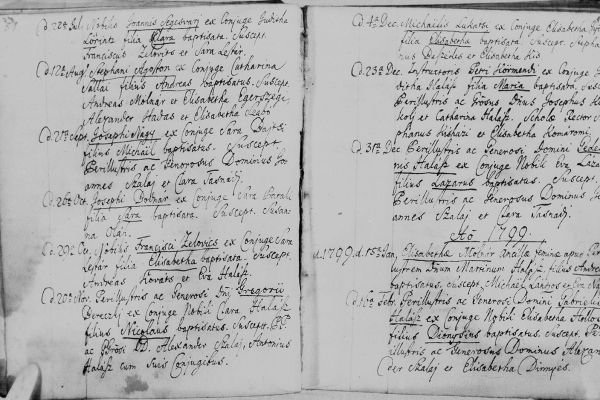 Cd. 22ª Jul. Nobilis Joannis Segesvari ex Conjuge Juditha
Lörintz filia Klara baptisata. Suscept.
Franciscus Zelovits et Sara Lestár.
Cd. 12ª Aug. Stephani Agoston ex Conjuge Catharina
Tallai filius Andreas baptisatus. Suscept.
Andreas Molnar et Elisabetha Egerszegi,
Alexander Hadas et Elisabetha Szabo
Josephi Nagy ex conjuge Sara
filius Michaël baptisatus. Suscept.
Perillustris ac Generosus Dominus Jo-
annes Szalaj et Clara Tasnadÿ.
Cd. 26ª Oct. Josephi Bodnar ex Conjuge Sara
filia Sara baptisata. Suscept. Susan-
na Olah.
Cd. 29ª Oc. Nobilis Francisci Zelovics ex Conjuge Sara
Lestár filia Elisabetha baptisata. Suscept.
Andreas Kovats et Eva Halasz.
Cd. 20ª Nov. Perillustris ac Generosi Dni Gregorii
Bereczkj ex Conjuge Nobili Clara Halasz
filius Nicolaus baptisatus. Suscept. PP.
ac DD. Alexander Szalaj, Antonius
Halasz cum suis Conjugibus.
Cd. 4ª Dec. Michaëlis Lukatsi ex Conjuge Elisabetha
filia Elisabetha baptisata. Suscept. Stepha-
nus et Elisabetha Kis.
Cd. 23ª Dec. Instructoris Petri Körmendi ex Conjuge
ditha Halasz filia Maria baptisata. Sus
Perillustris ac Grosus Dnus Josephus
et Catharina Halasz. Scholæ Rector
phanus et Elisabetha Komáromi.
Cd. 31ª Dec. Perillustris ac Generosi Domini Gede-
nis Halasz ex Conjuge Nobili Eva
filius Lazarus baptisatus. Suscept.
Perillustris ac Generosus Dominus
annes Szalaj et Clara Tasnadÿ.
Aõ 1799.
1799. d. 15ª Jan. Elisabethæ Molnar Ancillæ feminæ apud Per
lustrem Dnum Martinum Halasz, filius Andreas
baptisatus. Suscept. Michaël et Eva
Febr. Perillustris ac Generosi Domini Gabrielis
Halasz ex Conjuge Nobili Elisabetha
filius Dionysius baptisatus. Suscept. Per
illustris ac Generosus Dominus Alexan-
der Szalaj et Elisabetha